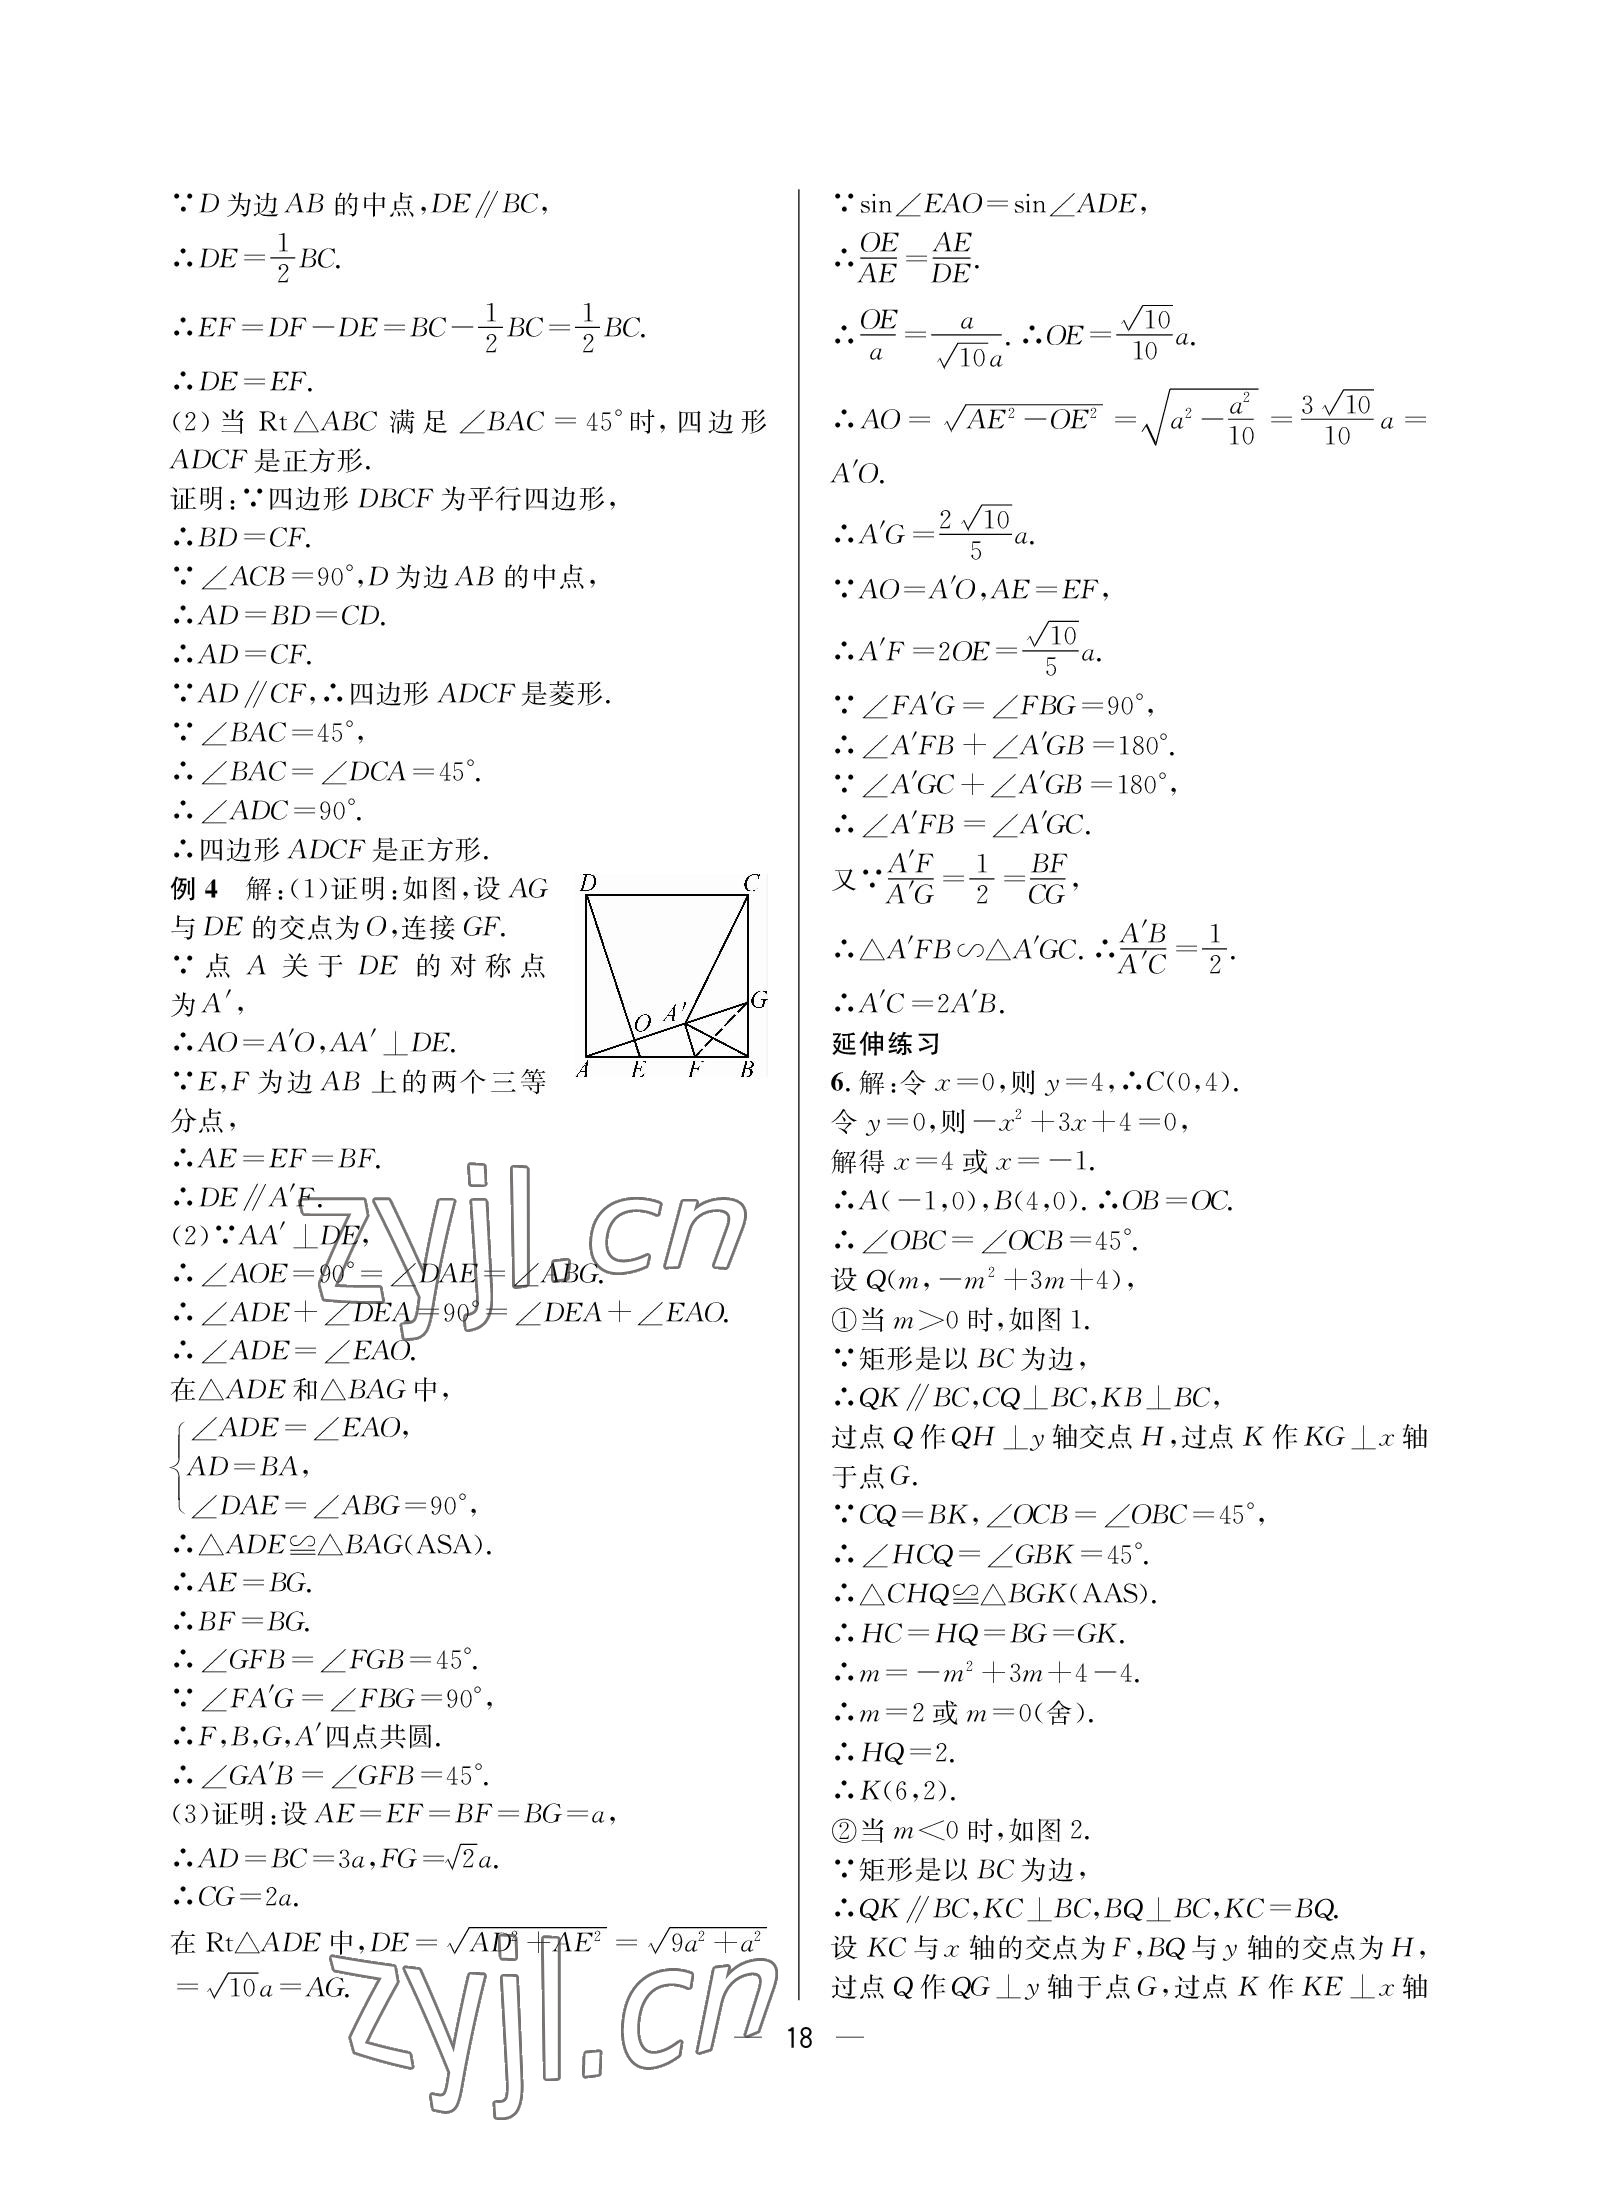 ∵D为边AB的中点,DE∥BC,
∴DE=1/2BC.
∴EF=DF-DE=BC-1/2BC=1/2BC.
∴DE=EF.
(2)当Rt△ABC满足∠BAC=45°时,四边形
ADCF是正方形.
证明:∵四边形DBCF为平行四边形,
∴BD=CF.
∵∠ACB=90°,D为边AB的中点,
∴AD=BD=CD.
∴AD=CF.
∵AD∥CF,∴四边形ADCF是菱形.
∵∠BAC=45°,
∴∠BAC=∠DCA=45°.
∴∠ADC=90°.
∴四边形ADCF是正方形.
例4 解:(1)证明:如图,设AG
与DE的交点为O,连接GF.
∵点A关于DE的对称点
为A′,
∴AO=A′O,AA′⊥DE.
∵E,F为边AB上的两个三等
分点,
∴AE=EF=BF.
∴DE∥A′F.
D C
G
O A′
A E F B
(2)∵AA′⊥DE,
∴∠AOE=90°=∠DAE=∠ABG.
∴∠ADE+∠DEA=90°=∠DEA+∠EAO.
∴∠ADE=∠EAO.
在△ADE和△BAG中,
∠ADE=∠EAO,
AD=BA,
∠DAE=∠ABG=90°,
∴△ADE≌△BAG(ASA).
∴AE=BG.
∴BF=BG.
∴∠GFB=∠FGB=45°.
∵∠FA′G=∠FBG=90°,
∴F,B,G,A′四点共圆.
∴∠GA′B=∠GFB=45°.
(3)证明:设AE=EF=BF=BG=a,
∴AD=BC=3a,FG=√2a.
∴CG=2a.
在Rt△ADE中,DE=√(AD²+AE²)=√(9a²+a²)
=√10a=AG.
∵sin∠EAO=sin∠ADE,
∴OE/AE=AE/DE.
∴OE/a=a/(√10a).∴OE=√10/10a.
∴AO=√(AE²-OE²)=√(a²-a²/10)=3√10/10a=
A′O.
∴A′G=2√10/5a.
∵AO=A′O,AE=EF,
∴A′F=2OE=√10/5a.
∵∠FA′G=∠FBG=90°,
∴∠A′FB+∠A′GB=180°.
∵∠A′GC+∠A′GB=180°,
∴∠A′FB=∠A′GC.
又∵A′F/A′G=1/2=BF/CG,
∴△A′FB∽△A′GC.∴A′B/A′C=1/2.
∴A′C=2A′B.
延伸练习
6.解:令x=0,则y=4,∴C(0,4).
令y=0,则-x²+3x+4=0,
解得x=4或x=-1.
∴A(-1,0),B(4,0).∴OB=OC.
∴∠OBC=∠OCB=45°.
设Q(m,-m²+3m+4),
①当m>0时,如图1.
∵矩形是以BC为边,
∴QK∥BC,CQ⊥BC,KB⊥BC,
过点Q作QH⊥y轴交点H,过点K作KG⊥x轴
于点G.
∵CQ=BK,∠OCB=∠OBC=45°,
∴∠HCQ=∠GBK=45°.
∴△CHQ≌△BGK(AAS).
∴HC=HQ=BG=GK.
∴m=-m²+3m+4-4.
∴m=2或m=0(舍).
∴HQ=2.
∴K(6,2).
②当m<0时,如图2.
∵矩形是以BC为边,
∴QK∥BC,KC⊥BC,BQ⊥BC,KC=BQ.
设KC与x轴的交点为F,BQ与y轴的交点为H,
过点Q作QG⊥y轴于点G,过点K作KE⊥x轴
— 18 —
zyjl.cn
zyjl.cn